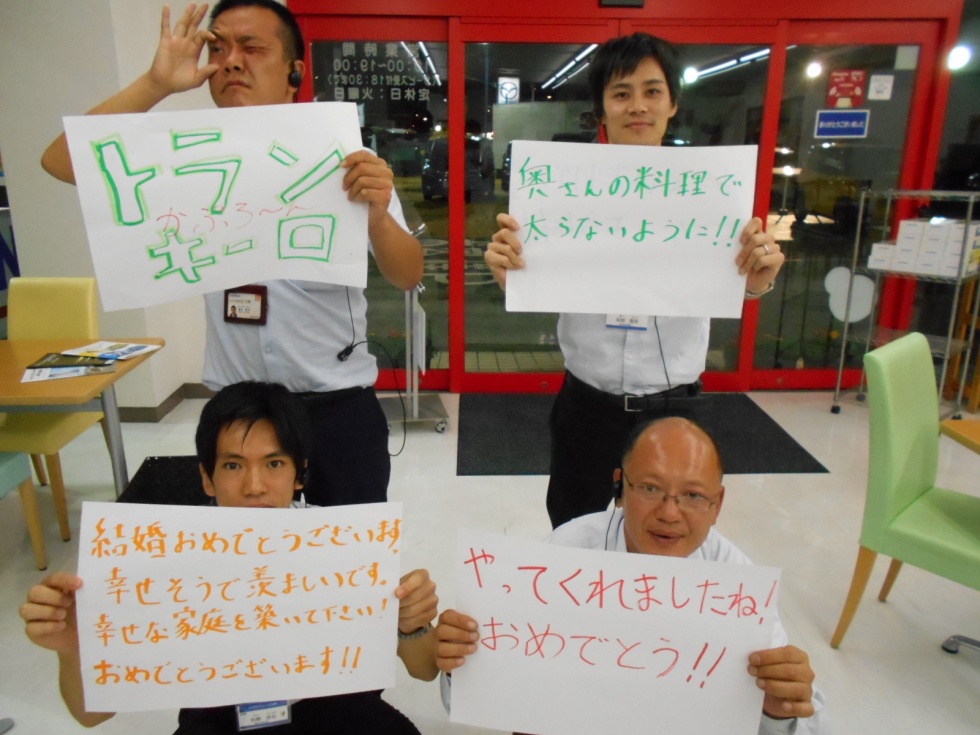 営業時間
00~19:00
サービス受付18:30まで
定休日:火曜日
ありがとうございました
トラン
かぶろ〜〜
キーロ
奥さんの料理で
太らないように!!
結婚おめでとうございます。
幸せそうで羨ましいです。
幸せな家庭を築いて下さい!
おめでとうございます!!
やってくれましたね!
おめでとう!!